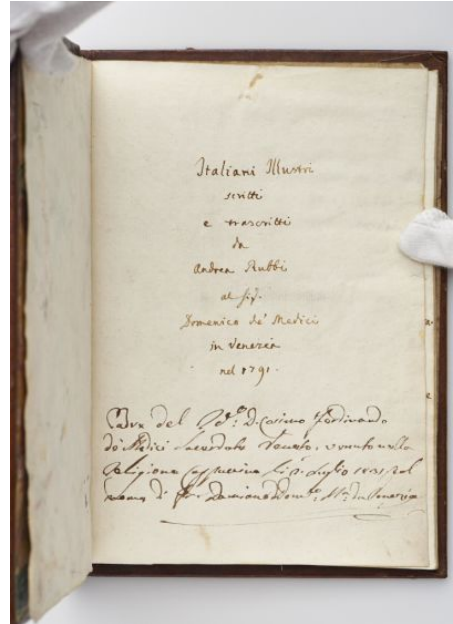 Italiani Illustri
scritti
e trascritti
da
Andrea Rubbi
al Sig.
Domenico de' Medici
in Venezia
nel 1791.
del D. Cosimo Ferdinando
de' Medici Sacerdote Veneto, venuto nella
Religione Luglio 1831 col
nome di Fr. Damiano da Venezia